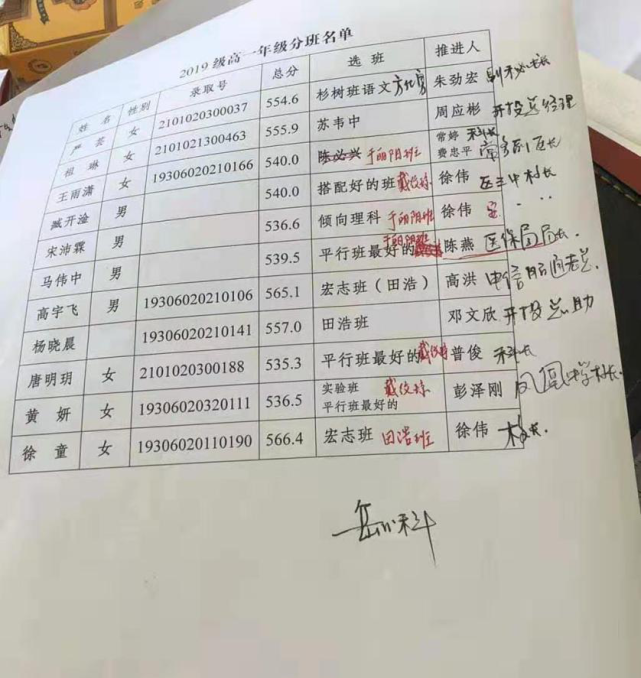 2019级高一年级分班名单
姓 名 性别 录取号 总分 选 班 推进人
严 芸 女 2101020300037 554.6 杉树班语文 朱劲宏
祖 琳 女 2101021300463 555.9 苏韦中 周应彬 开投总经理
王雨潇 女 19306020210166 540.0 陈必兴 于丽阳班 常婷 科长 费忠平
臧开淦 男 540.0 搭配好的班 戴俊栋 徐伟
宋沛霖 男 536.6 倾向理科 于丽阳班 徐伟
马伟中 男 539.5 平行班最好的 于丽阳班 陈燕 医保局局长
高宇飞 男 19306020210106 565.1 宏志班（田浩） 高洪
杨晓晨 19306020210141 557.0 田浩班 邓文欣 开投总助
唐明玥 女 2101020300188 535.3 平行班最好的 戴俊栋 普俊 科长
黄 妍 女 19306020320111 536.5 实验班 平行班最好的 戴俊栋 彭泽刚 凤凰中学校长
徐 童 女 19306020110190 566.4 宏志班 田浩班 徐伟 校长.